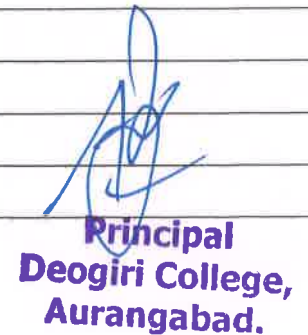 Principal
Deogiri College,
Aurangabad.